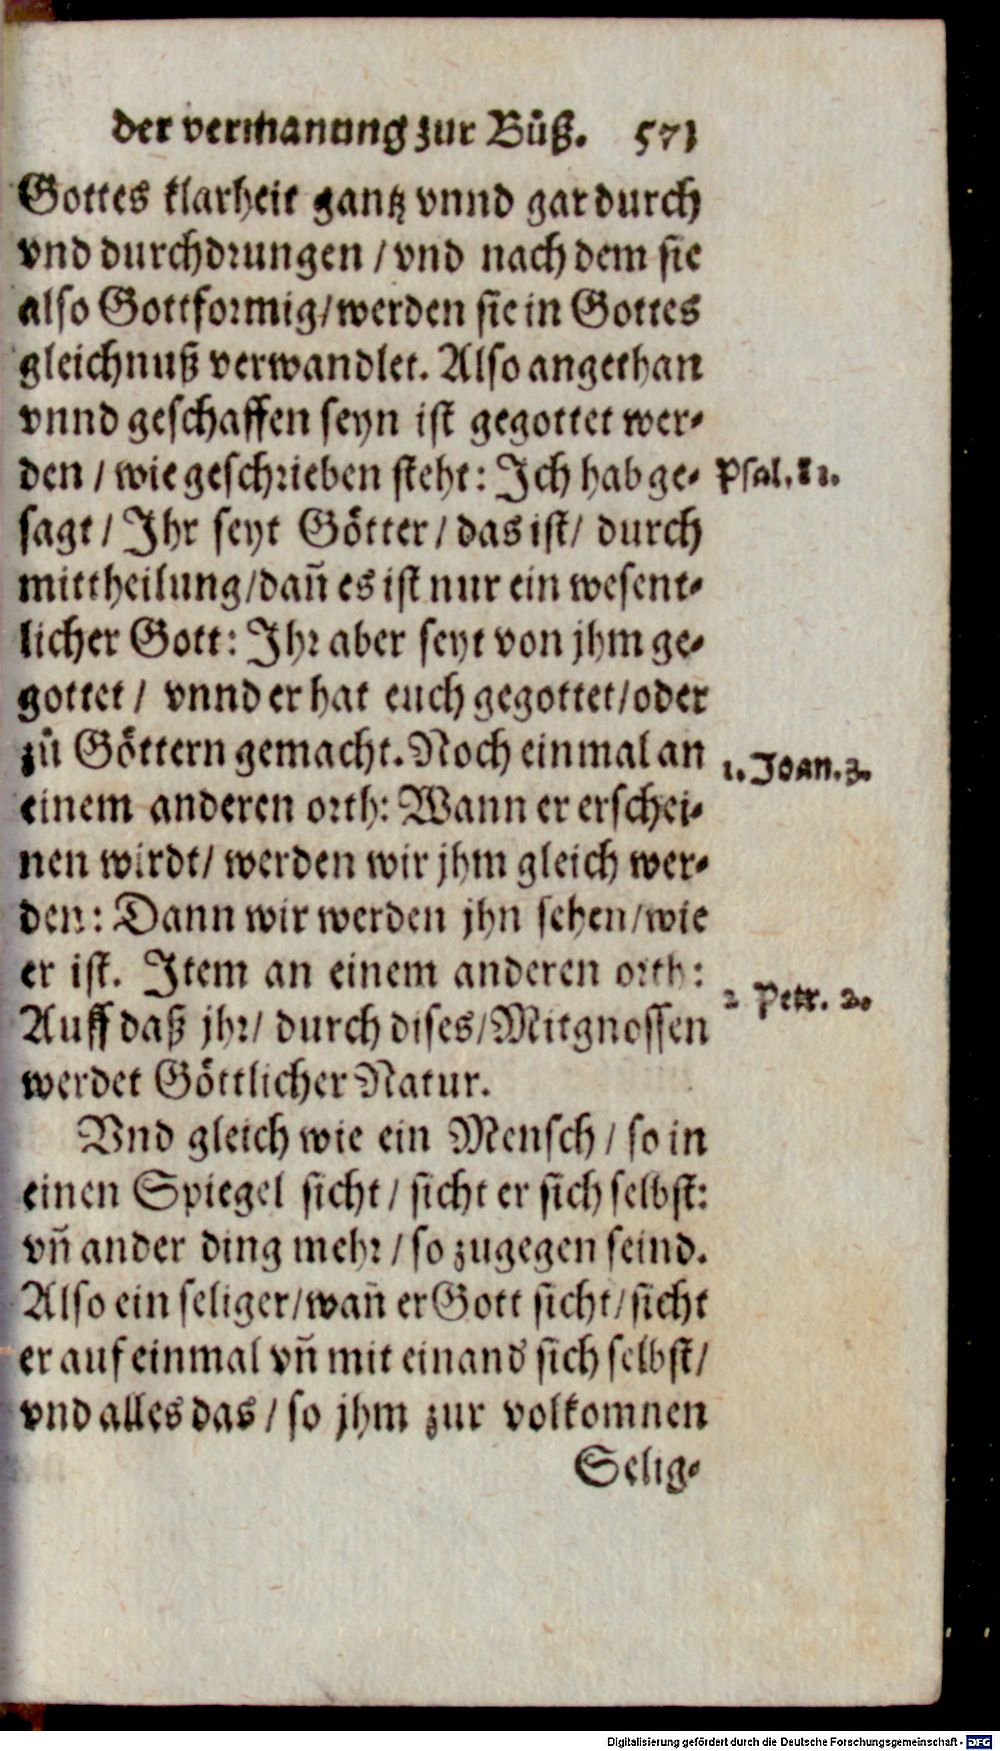 der vermanung zur Bůß. 571
Gottes klarheit gantz vnnd gar durch
vnd durchdrungen / vnd nach dem sie
also Gottformig / werden sie in Gottes
gleichnuß verwandlet. Also angethan
vnnd geschaffen seyn ist gegottet wer-
den / wie geschrieben steht: Ich hab ge- Psal. 81.
sagt / Ihr seyt Götter / das ist / durch
mittheilung / dañ es ist nur ein wesent-
licher Gott: Ihr aber seyt von jhm ge-
gottet / vnnd er hat euch gegottet / oder
zů Göttern gemacht. Noch einmal an 1. Joan. 3.
einem anderen orth: Wann er erschei-
nen wirdt / werden wir jhm gleich wer-
den: Dann wir werden jhn sehen / wie
er ist. Item an einem anderen orth: 2 Petr. 2.
Auff daß jhr / durch dises / Mitgnossen
werdet Göttlicher Natur.
Vnd gleich wie ein Mensch / so in
einen Spiegel sicht / sicht er sich selbst:
vñ ander ding mehr / so zugegen seind.
Also ein seliger / wañ er Gott sicht / sicht
er auf einmal vñ mit einand sich selbst /
vnd alles das / so jhm zur volkomnen
Selig-
Digitalisierung gefördert durch die Deutsche Forschungsgemeinschaft - DFG